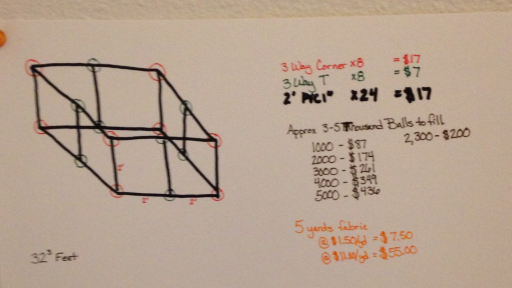 3 Way Corner x8 = $17
3 Way T x8 = $7
2" PVC 1" x24 = $17
Approx 3-5 Thousand Balls to fill
1000 - $87
2,300 - $200
2000 - $174
3000 - $261
4000 - $349
5000 - $436
2'
2' 2'
5 yards fabric
@ $1.50/yd = $7.50
@ $11.00/yd = $55.00
32³ Feet